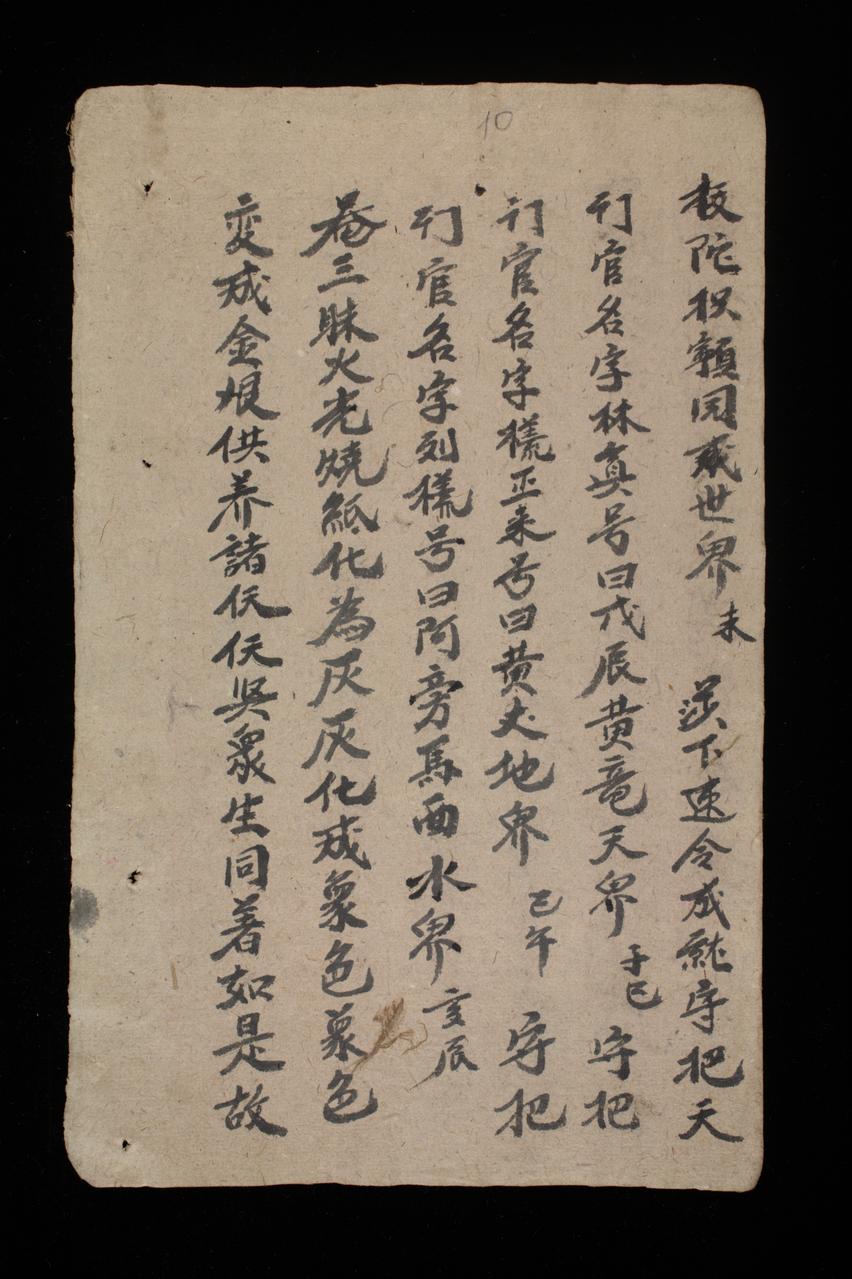 10
板陀枳願同成世界 未 送下速令成就守把天
刊官名字林真号曰戊辰黄竜天界 子巳 守把
刊官名字樣正来号曰黄丈地界 己午 守把
刊官名字列樣号曰阿旁馬面水界 亥辰
菴三昧火光燒紙化為灰灰化成象色象色
变成金根供养諸仸仸與众生同着如是故